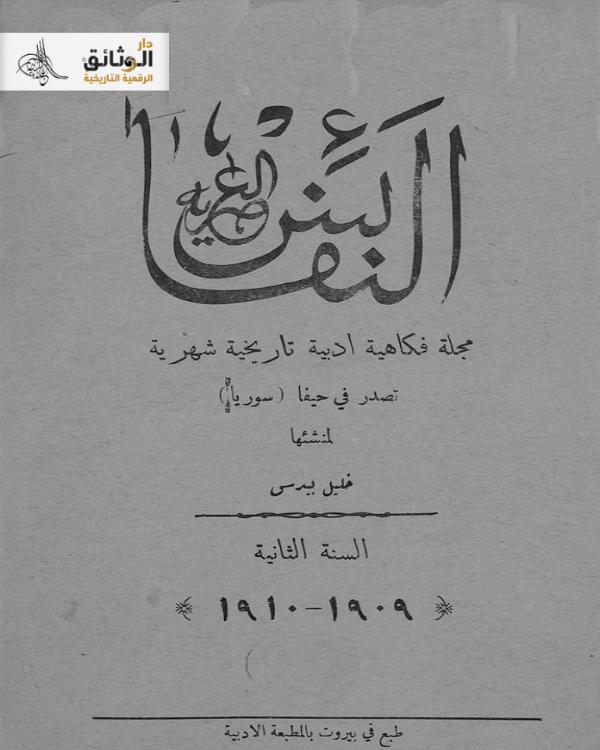 دار
الوثائق
الرقمية التاريخية
النفائس
العصرية
مجلة فكاهية ادبية تاريخية شهرية
تصدر في حيفا (سوريا)
لمنشئها
خليل بيدس
السنة الثانية
١٩٠٩-١٩١٠
طبع في بيروت بالمطبعة الادبية